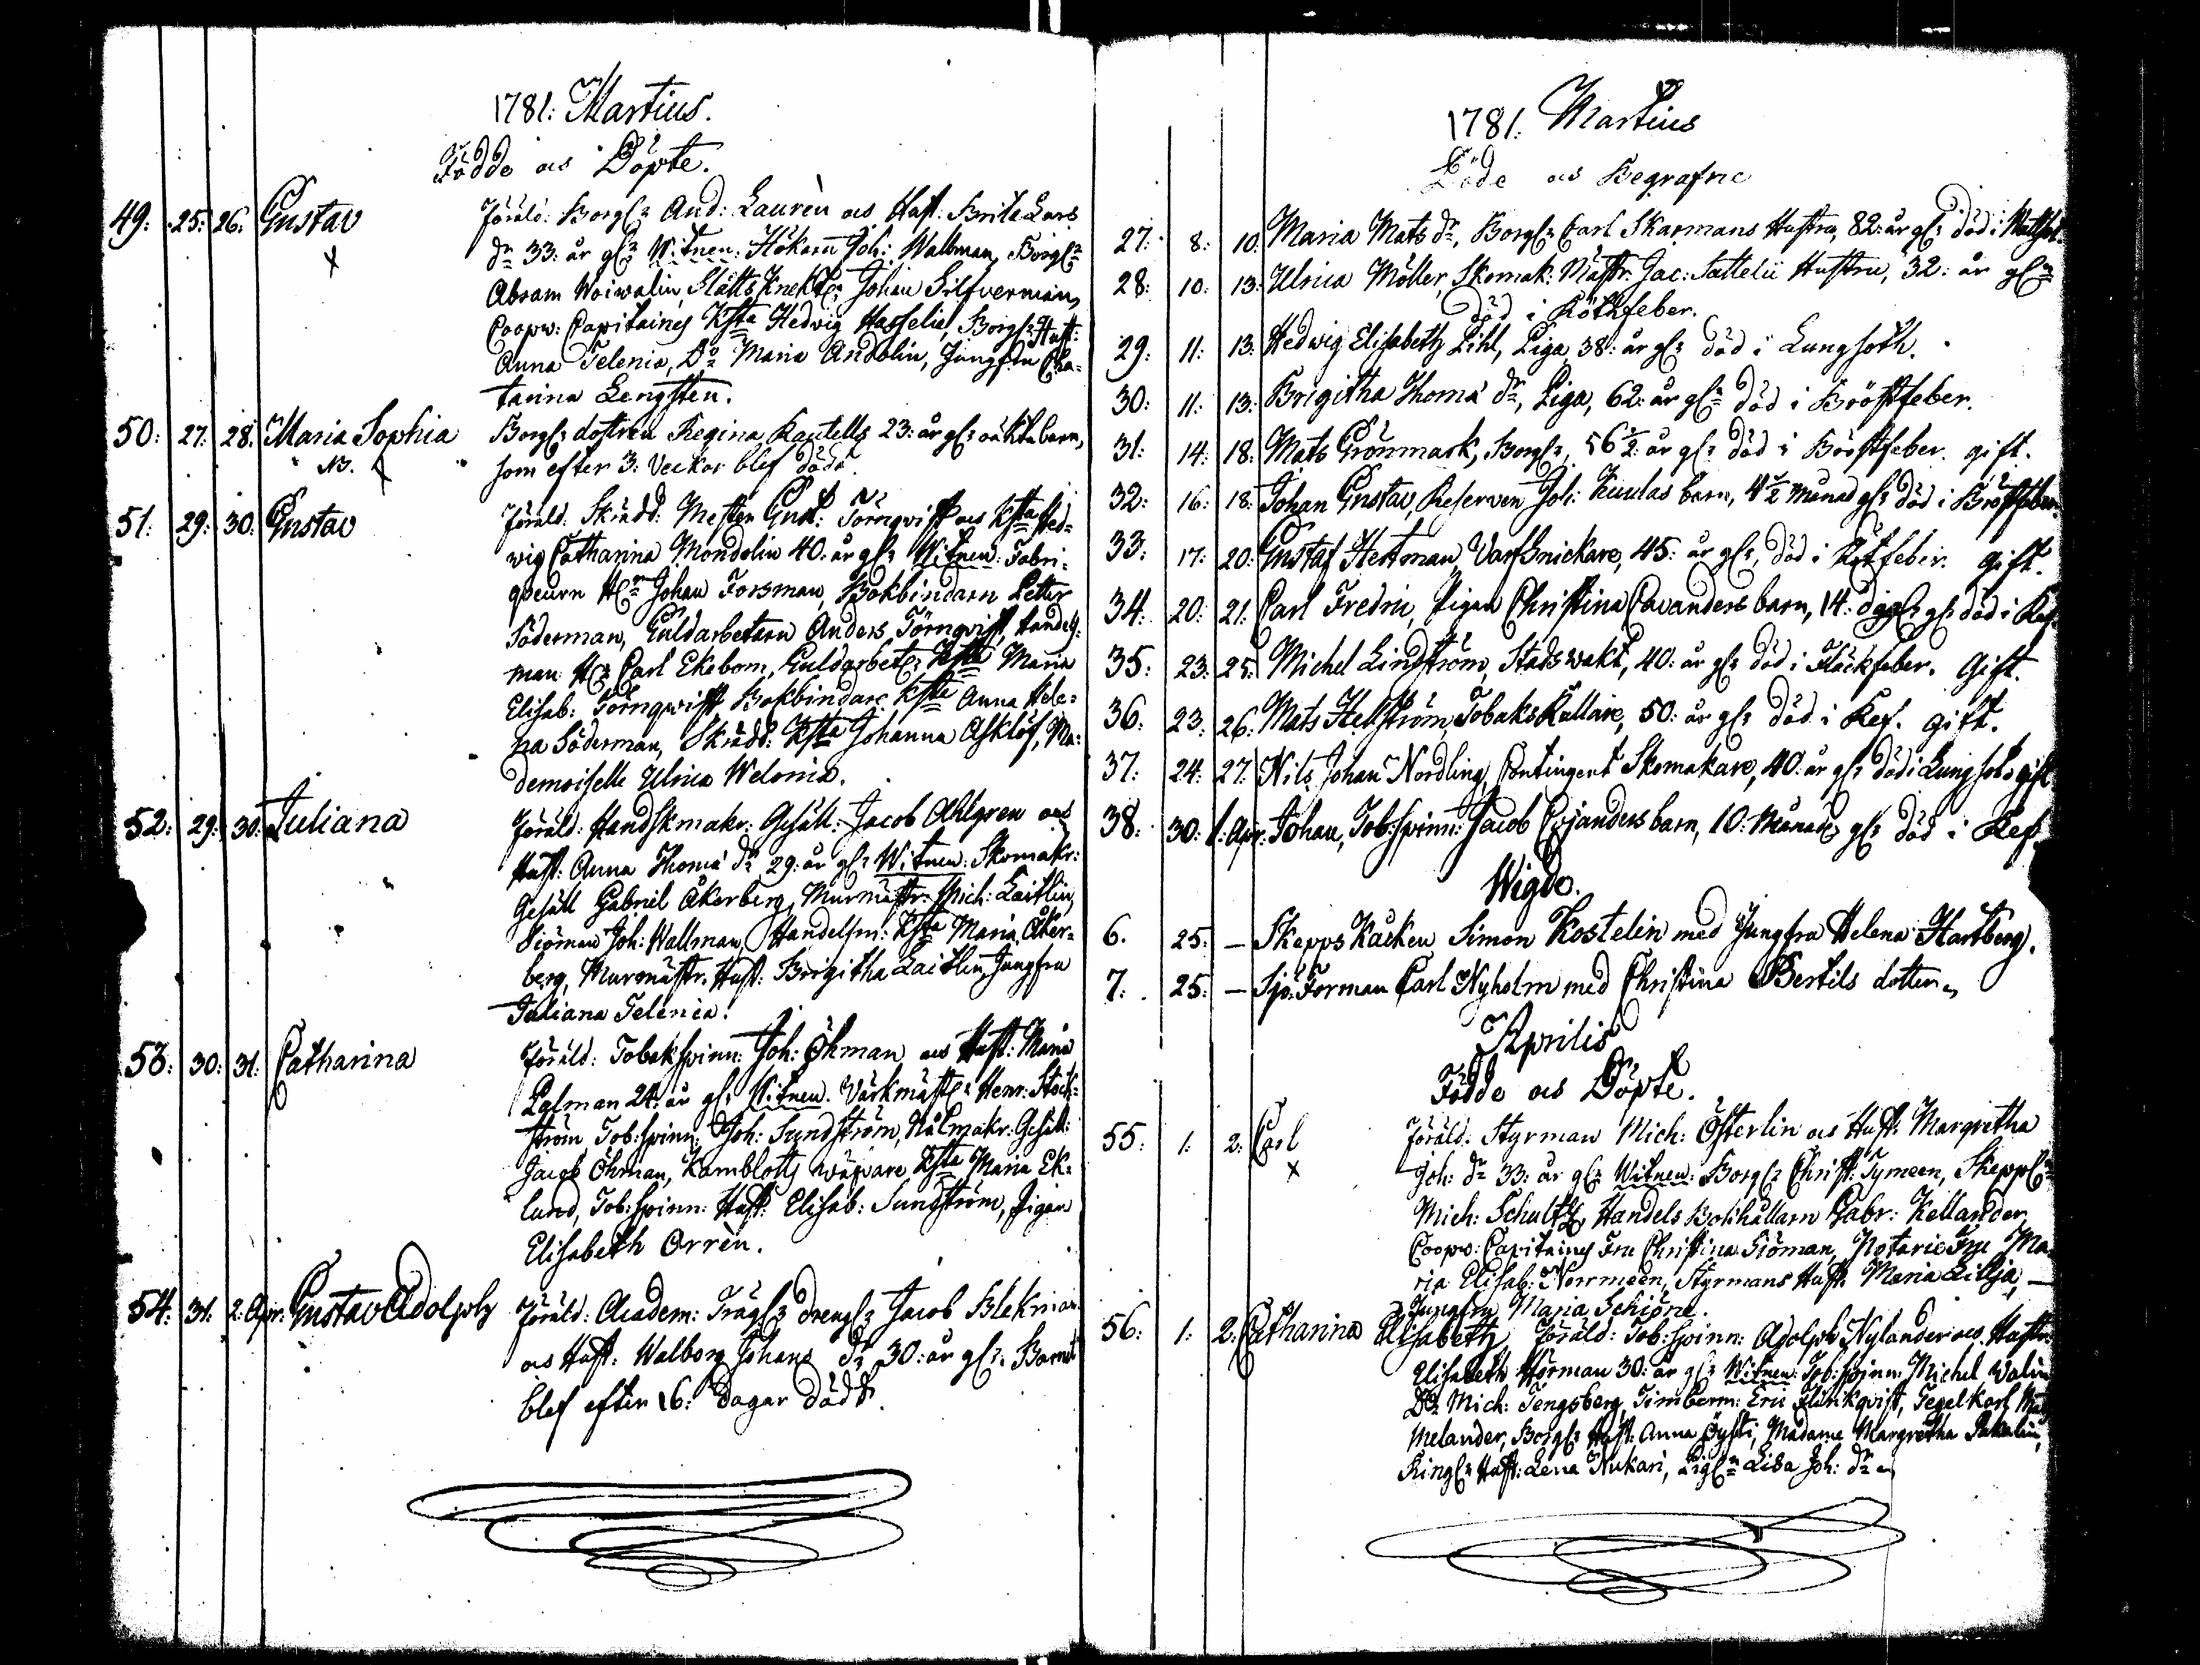 1781: Martius.
Födde och Döpte.
49: 25: 26: Gustav Föräld: Borg: And: Laurèn och Hust: Brita Lars
dr 33: år gl: Witnen: Hökarn Joh: Wallman, Borg:
Abram Woiwalin, Slåtts Knekt: Johan Silfverman,
Coopv: Capitaines K:sta Hedwig Hasselia, Borg: Hust:
Anna Telenia, Do Maria Andolin, Jungfru Cha-
tarina Lengsten.
50: 27: 28: Maria Sophia Borg: dottren Regina Kautells 23: år gl: oäkta barn,
NB. som efter 3: Veckor blef död.
51: 29: 30: Gustav Föräld: Skrädd: Mesten Gust: Törnqvist och K:sta Hed-
wig Catharina Mondolin 40: år gl: Witnen: Fabri-
queurn H:r Johan Forsman, Bokbindarn Petter
Söderman, Guldarbetarn Anders Törnqvist, Handels-
man H:r Carl Ekebom, Guldarbet: K:sta Maria
Elisab: Törnqwist, Bokbindare K:sta Anna Hele-
na Söderman, Skrädd: K:sta Johanna Asklöf, Ma-
demoiselle Ulrica Welonia.
52: 29: 30: Juliana Föräld: Handskmakr: Gesäll: Jacob Ahlgren och
Hust: Anna Thomæ dr 29: år gl: Witnen: Skomakr:
Gesäll Gabriel Åkerberg, Murmästr: Mich: Laitlin,
Siöman Joh: Wallman, Handelsm: K:sta Maria Åker-
berg, Murmästr: Hust: Brigitha Laitlin, Jungfru
Juliana Telenia.
53: 30: 31: Catharina Föräld: Tobakspinn: Joh: Öhman och Hust: Maria
Palman 24: år gl: Witnen: Värkmäst: Henr: Stock-
ström Tob: spinn: Joh: Sundström, Nålmakr: Gesäll:
Jacob Öhman, Kamblotts wäfvare K:sta Maria Ek-
lund, Tob: spinn: Hust: Elisab: Sundström, Pigan
Elisabeth Orrèn.
54: 31: 2. Apr: Gustav Adolph Föräld: Academ: Trägs drengs Jacob Blekman
och Hust: Walborg Johans dr 30: år gl: Barnet
blef efter 16: dagar dödt.
1781: Martius
Döde och Begrafne
27: 8: 10: Maria Mats dr, Borg: Carl Skarmans Hustru, 82: år gl: död i
28: 10: 13: Ulrica Möller, Skomak: Mästr: Jac: Sattelii Hustru, 32: år gl:
död i Rötkfeber.
29: 11: 13: Hedwig Elisabeth Lihl, Piga, 38: år gl: död i Lungsoth.
30: 11: 13: Brigitha Thomæ dr, Piga, 62: år gl: död i Bröstfeber.
31: 14: 18: Mats Grönmark, Borg:, 56 1/2: år gl: död i Bröstfeber. gift.
32: 16: 18: Johan Gustav, Reserven Joh: barn, 4 1/2 Månad gl: död i Bröstfeber.
33: 17: 20: Gustaf Hertman, Varfsnickare, 45: år gl: död i Rötfeber. gift.
34: 20: 21: Carl Fredric, Pigan Christina Cavanders barn, 14: dags gl: död i Kef.
35: 23: 25: Michel Lindström, Stads wakt, 40: år gl: död i Fläckfeber. Gift.
36: 23: 26: Mats Hellström, Tobaks Kullare, 50: år gl: död i Kef. gift.
37: 24: 27: Nils Johan Nordling, Contingent Skomakare, 40: år gl: död i Lungsot. gift
38: 30: 1: Apr: Johan, Tob: spinn: Jacob Erjanders barn, 10: Månad: gl: död i Kef.
Wigde.
6. 25: — Skepps Käcken Simon Kostelin med Jungfru Helena Hartberg.
7: 25: — Sjö: Forman Carl Nyholm med Christina Bertils dotter
Aprilis
Födde och Döpte.
55: 1: 2: Carl Föräld: Styrman Mich: Österlin och Hust: Margretha
Joh: dr 33: år gl: Witnen: Borg: Christ: Tymeen, Skepp:
Mich: Schultz, Handels Bokhållarn Gabr: Kellander,
Coopv: Capitaines Fru Christina Siöman, Notarie Fru Ma-
ria Elisab: Norrmeen, Styrmans Hust: Maria Lillja,
Jungfru Maria Schiöne.
56: 1: 2: Catharina Elisabeth Föräld: Tob: spinn: Adolph Nylander och Hustr:
Elisabeth Hörman 30: år gl: Witnen: Tob: spinn: Michel Walin
Do Mich: Tengsberg, Timberm: Eric Flinkqvist, Tegelkarl
Melander, Borg: Hust: Anna Öysti, Madame Margretha
Ringl: Hust: Lena Nukari, Pig: Lisa Joh: dr